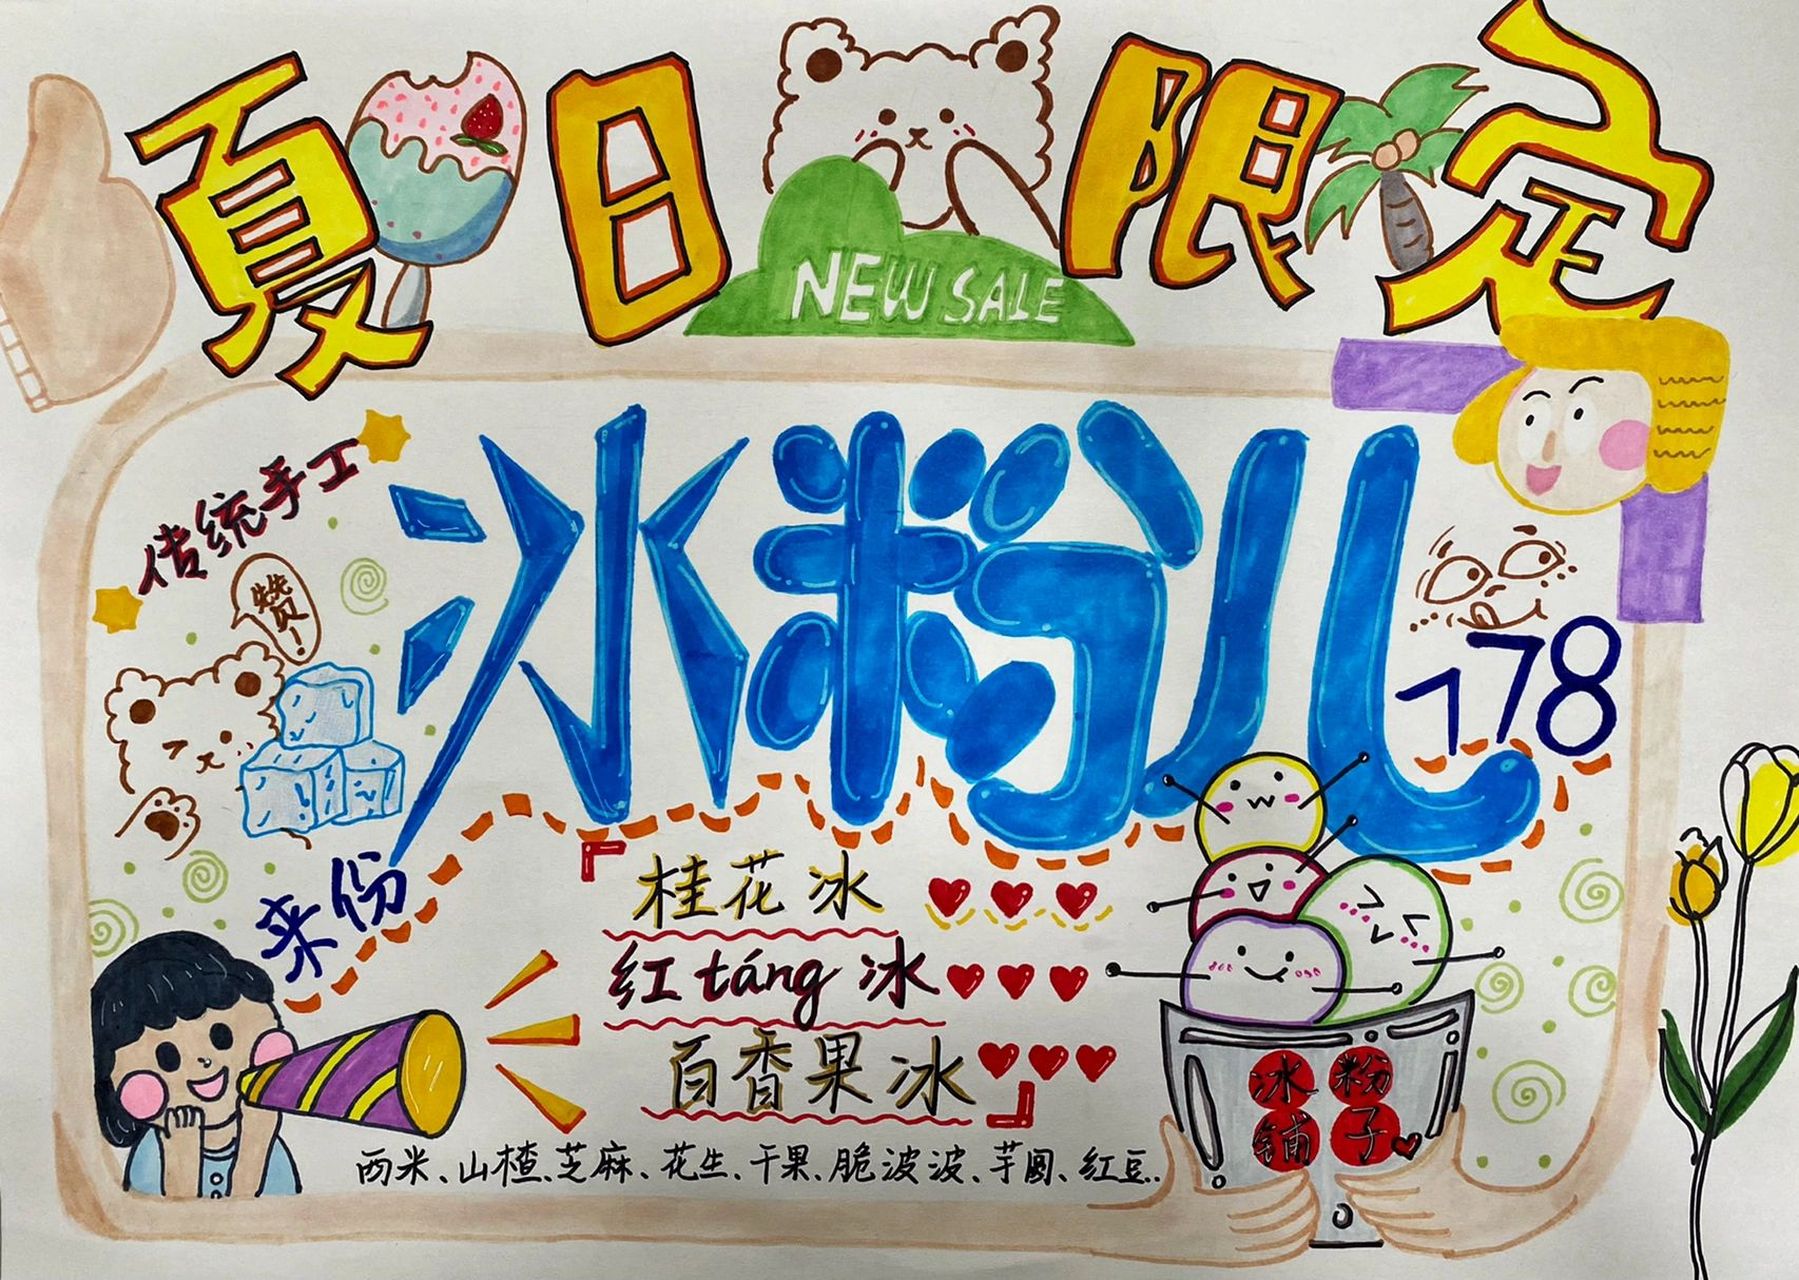 夏日限定
NEW SALE
传统手工
赞!
冰粉儿
178
来份
『桂花冰
红táng冰
百香果冰』
西米、山楂、芝麻、花生、干果、脆波波、芋圆、红豆..
冰粉
铺子